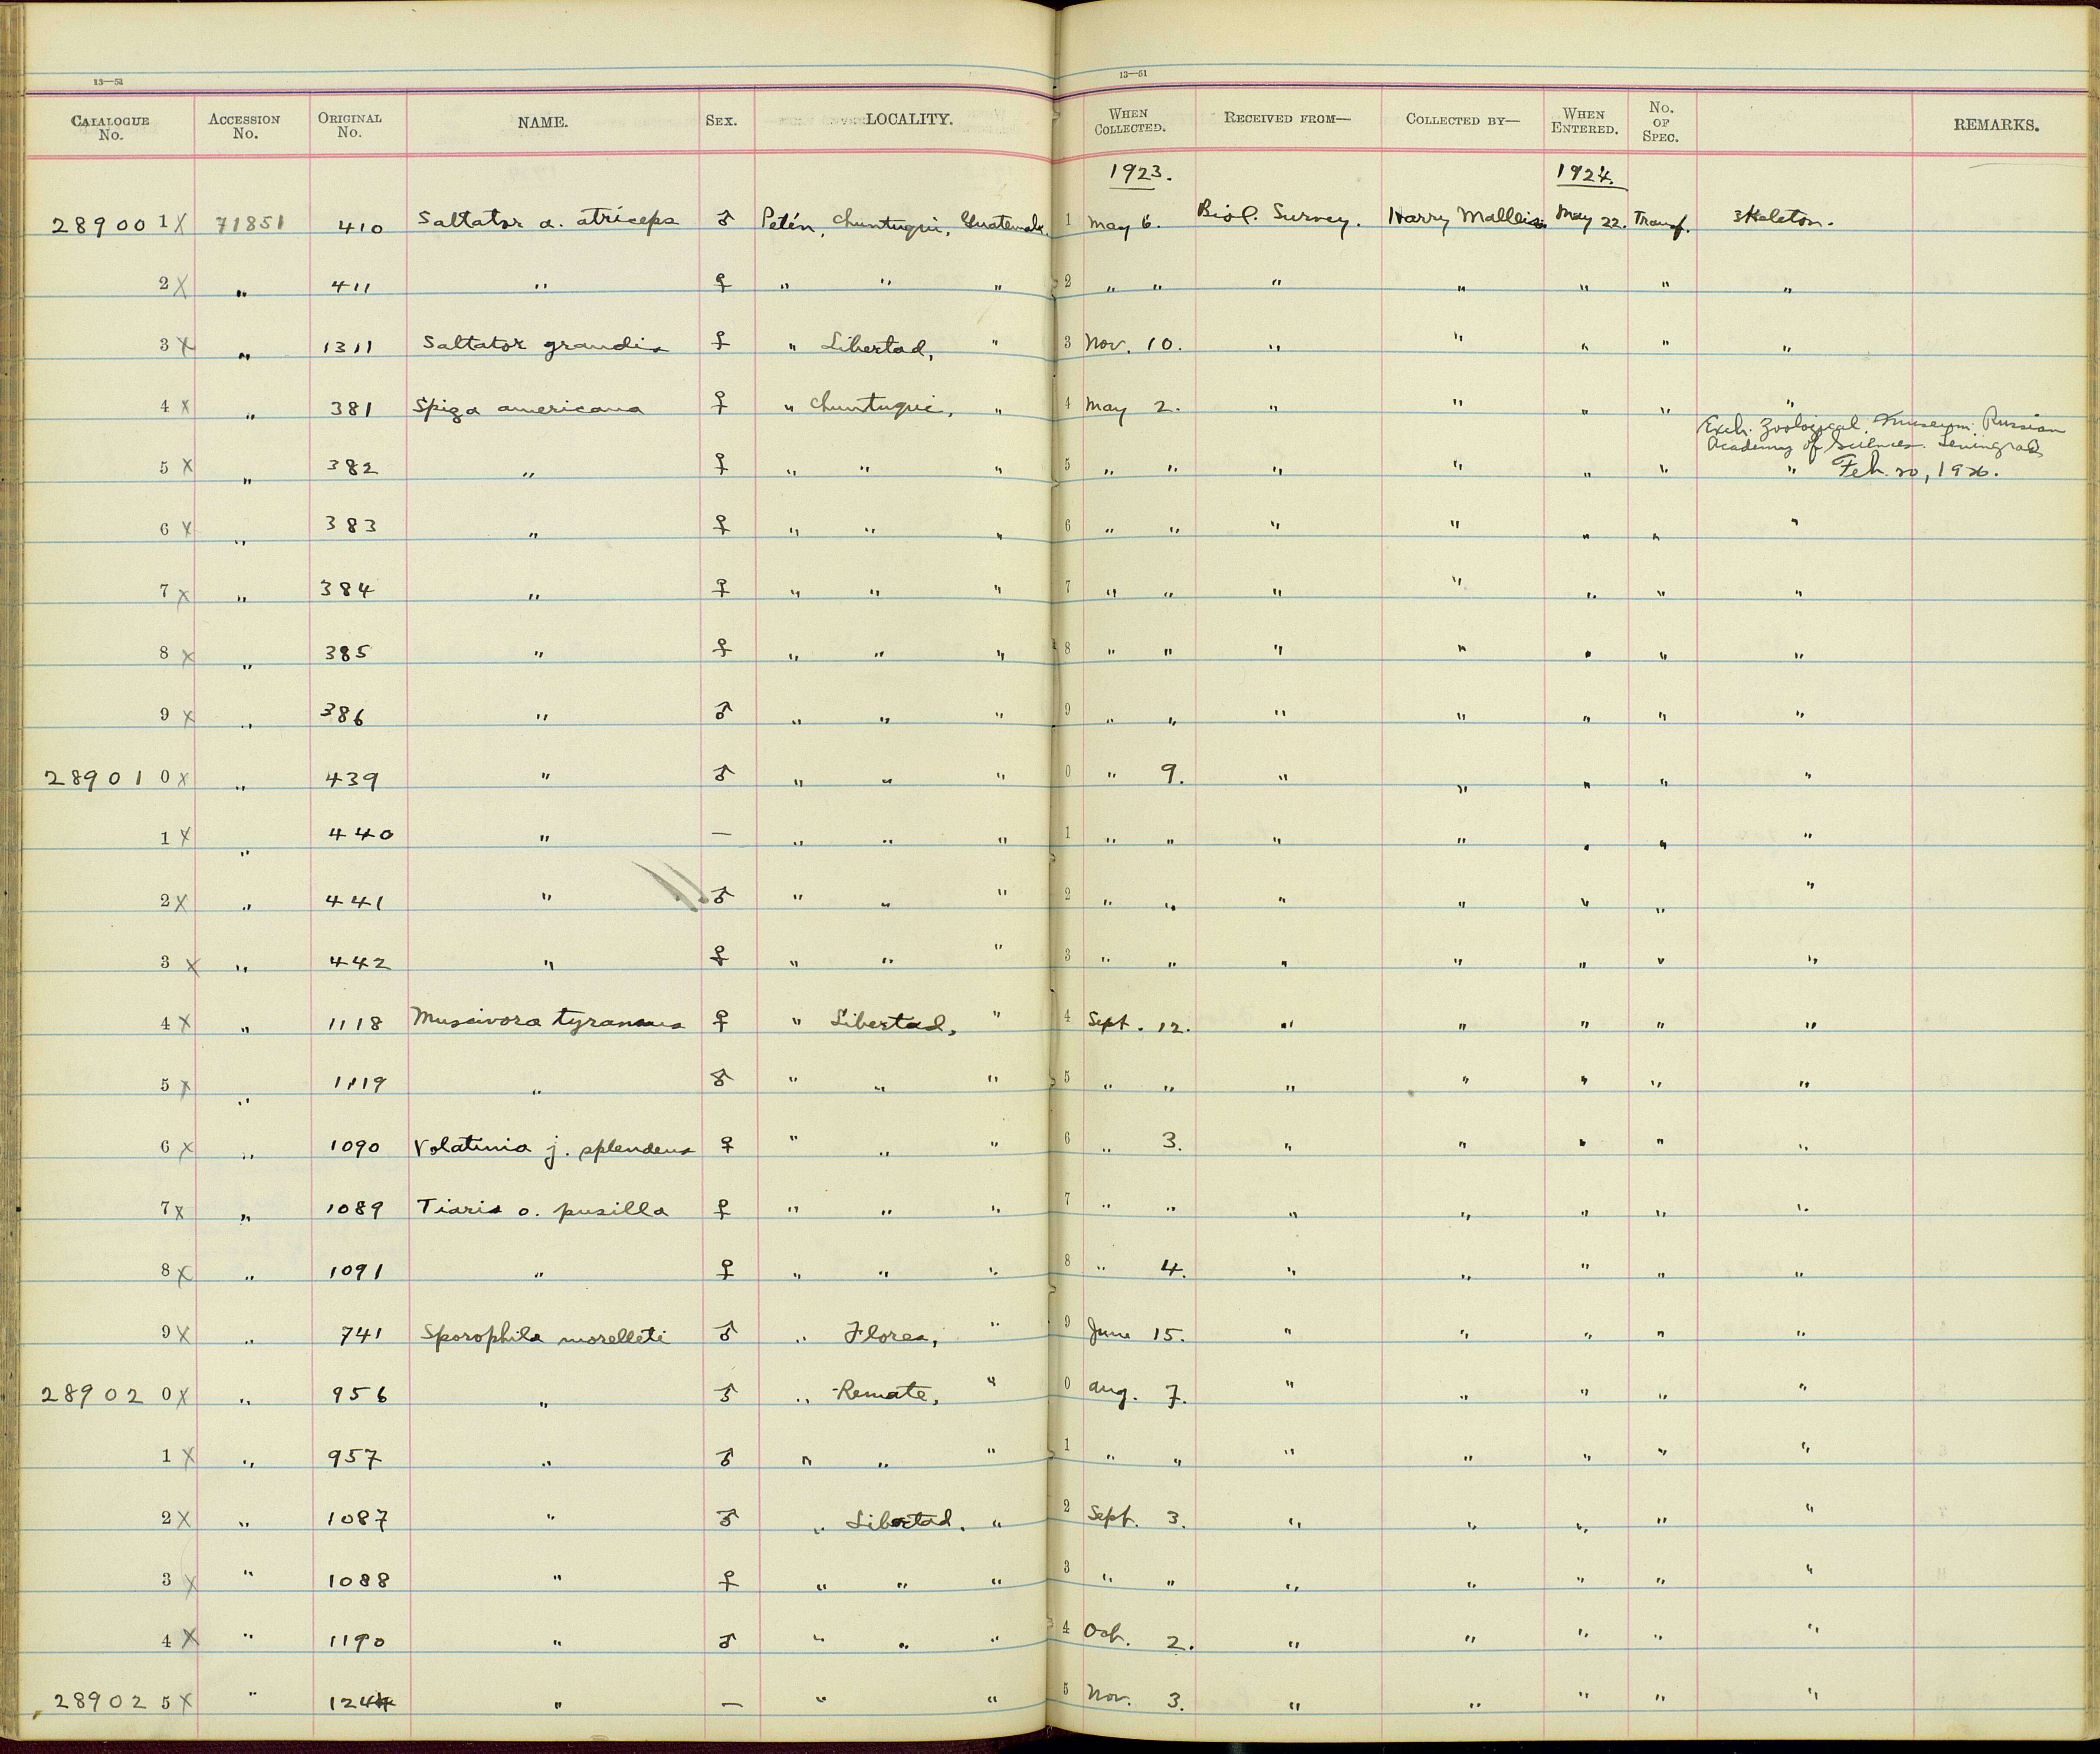 13—51
13—51
CATALOGUE No. ACCESSION No. ORIGINAL No. NAME. SEX. LOCALITY. WHEN COLLECTED. RECEIVED FROM— COLLECTED BY— WHEN ENTERED. No. OF SPEC. REMARKS.
1923. 1924.
289001 X 71851 410 Saltator a. atriceps ♂ Petén, Chuntuqui, Guatemala. 1 May 6. Biol. Survey. Harry Malleis May 22. Transf. Skeleton.
2 X " 411 " ♀ " " " 2 " " " " " " "
3 X " 1311 Saltator grandis ♀ " Libertad, " 3 Nov. 10. " " " " "
4 X " 381 Spiza americana ♀ " Chuntuqui, " 4 May 2. " " " " "
Exch. Zoological Museum Russian
Academy of Sciences. Leningrad
5 X " 382 " ♀ " " " 5 " " " " " " " Feb. 20, 1926.
6 X " 383 " ♀ " " " 6 " " " " " " "
7 X " 384 " ♀ " " " 7 " " " " " " "
8 X " 385 " ♀ " " " 8 " " " " " " "
9 X " 386 " ♂ " " " 9 " " " " " " "
289010 X " 439 " ♂ " " " 0 " 9. " " " " "
1 X " 440 " — " " " 1 " " " " " " "
2 X " 441 " ♂ " " " 2 " " " " " " "
3 X " 442 " ♀ " " " 3 " " " " " " "
4 X " 1118 Muscivora tyrannus ♀ " Libertad, " 4 Sept. 12. " " " " "
5 X " 1119 " ♂ " " " 5 " " " " " " "
6 X " 1090 Volatinia j. splendens ♀ " " " 6 " 3. " " " " "
7 X " 1089 Tiaris o. pusilla ♀ " " " 7 " " " " " " "
8 X " 1091 " ♀ " " " 8 " 4. " " " " "
9 X " 741 Sporophila morelleti ♂ " Flores, " 9 June 15. " " " " "
289020 X " 956 " ♂ " Remate, " 0 Aug. 7. " " " " "
1 X " 957 " ♂ " " " 1 " " " " " " "
2 X " 1087 " ♂ " Libertad, " 2 Sept. 3. " " " " "
3 X " 1088 " ♀ " " " 3 " " " " " " "
4 X " 1190 " ♂ " " " 4 Oct. 2. " " " " "
289025 X " 1244 " — " " 5 Nov. 3. " " " " "